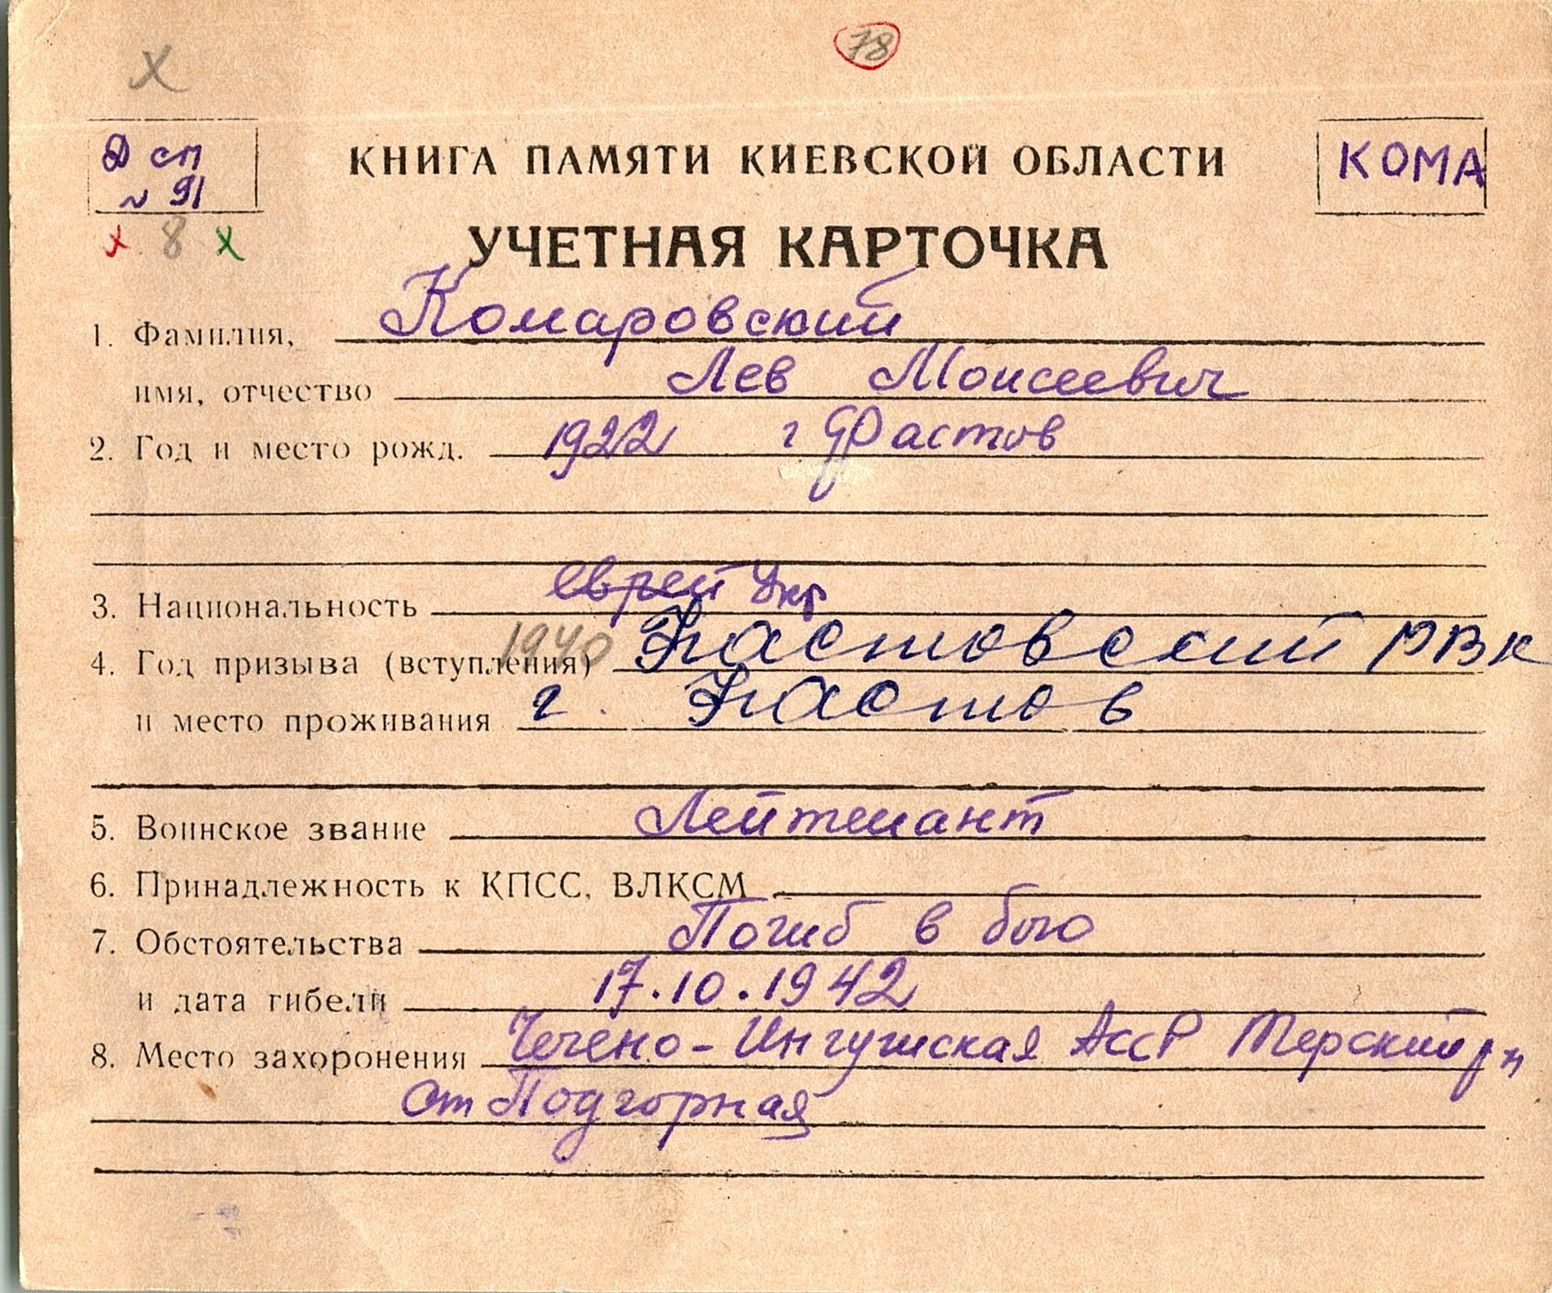 х
78
Д сп
№ 91
КНИГА ПАМЯТИ КИЕВСКОЙ ОБЛАСТИ
КОМА
х 8 х
УЧЕТНАЯ КАРТОЧКА
1. Фамилия, Комаровский
имя, отчество Лев Моисеевич
2. Год и место рожд. 1922 г Фастов
3. Национальность еврей Укр
4. Год призыва (вступления) 1940 Фастовский РВК
и место проживания г. Фастов
5. Воинское звание Лейтенант
6. Принадлежность к КПСС, ВЛКСМ
7. Обстоятельства Погиб в бою
и дата гибели 17.10.1942
8. Место захоронения Чечено-Ингушская АССР Терский р-н
ст Подгорная